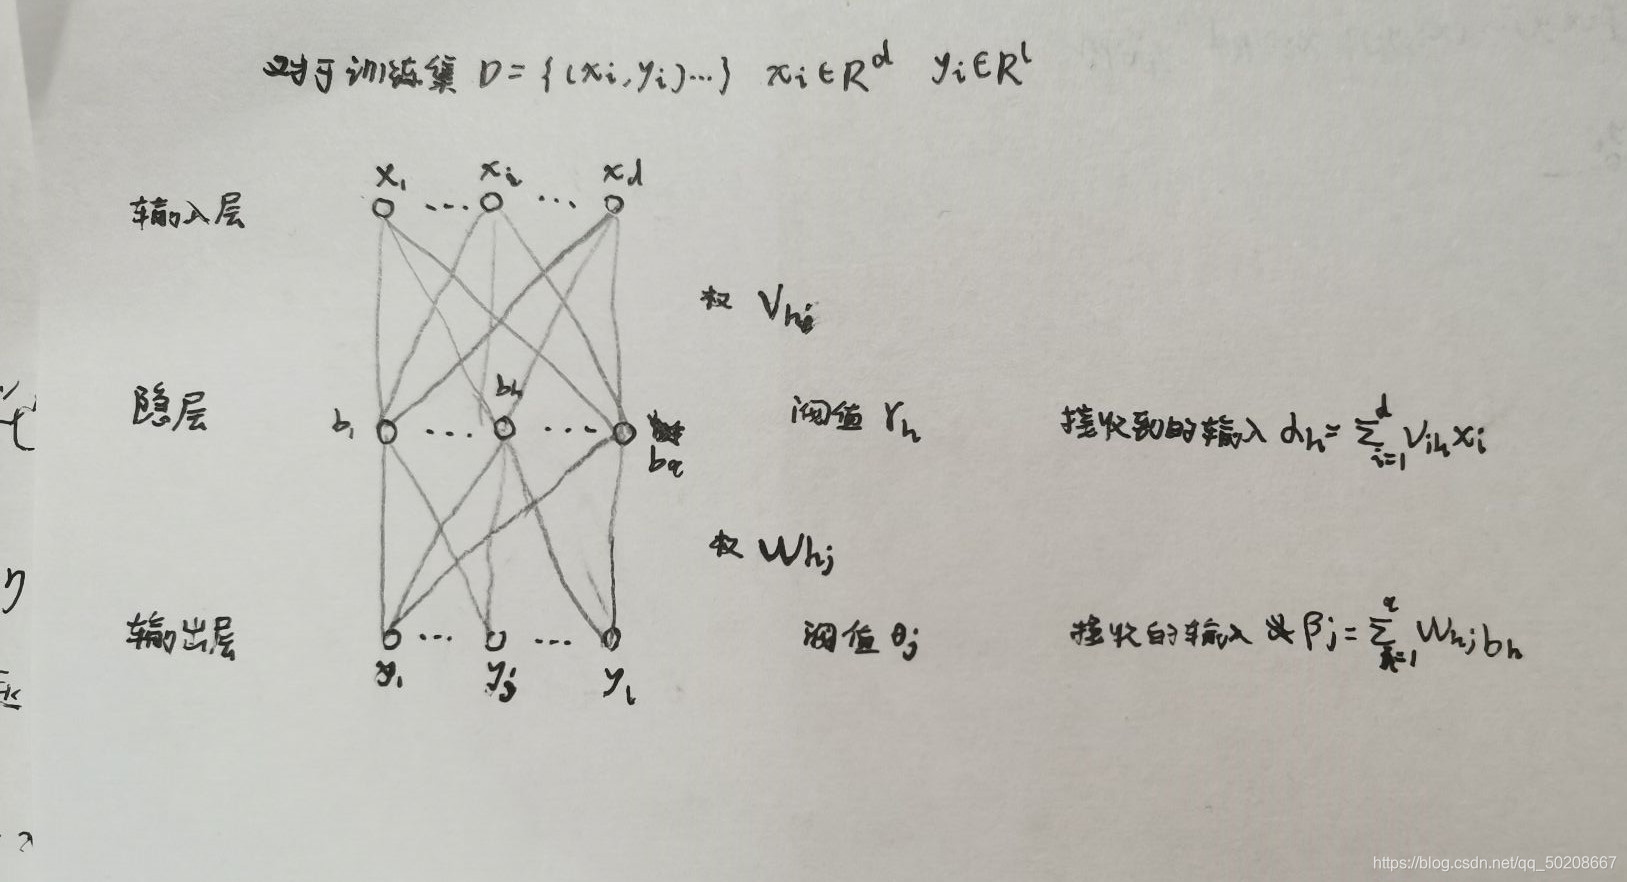 对于训练集 D = {(xi, yi)...} xi ∈ R^d yi ∈ R^l
x1 ... xi ... xd
输入层
权 Vhi
隐层 b1 ... bh ... bq 阈值 γh 接收到的输入 αh = Σ_{i=1}^{d} Vih xi
权 Whj
输出层 阈值 θj 接收的输入 βj = Σ_{h=1}^{q} Whj bh
y1 yj yl
https://blog.csdn.net/qq_50208667